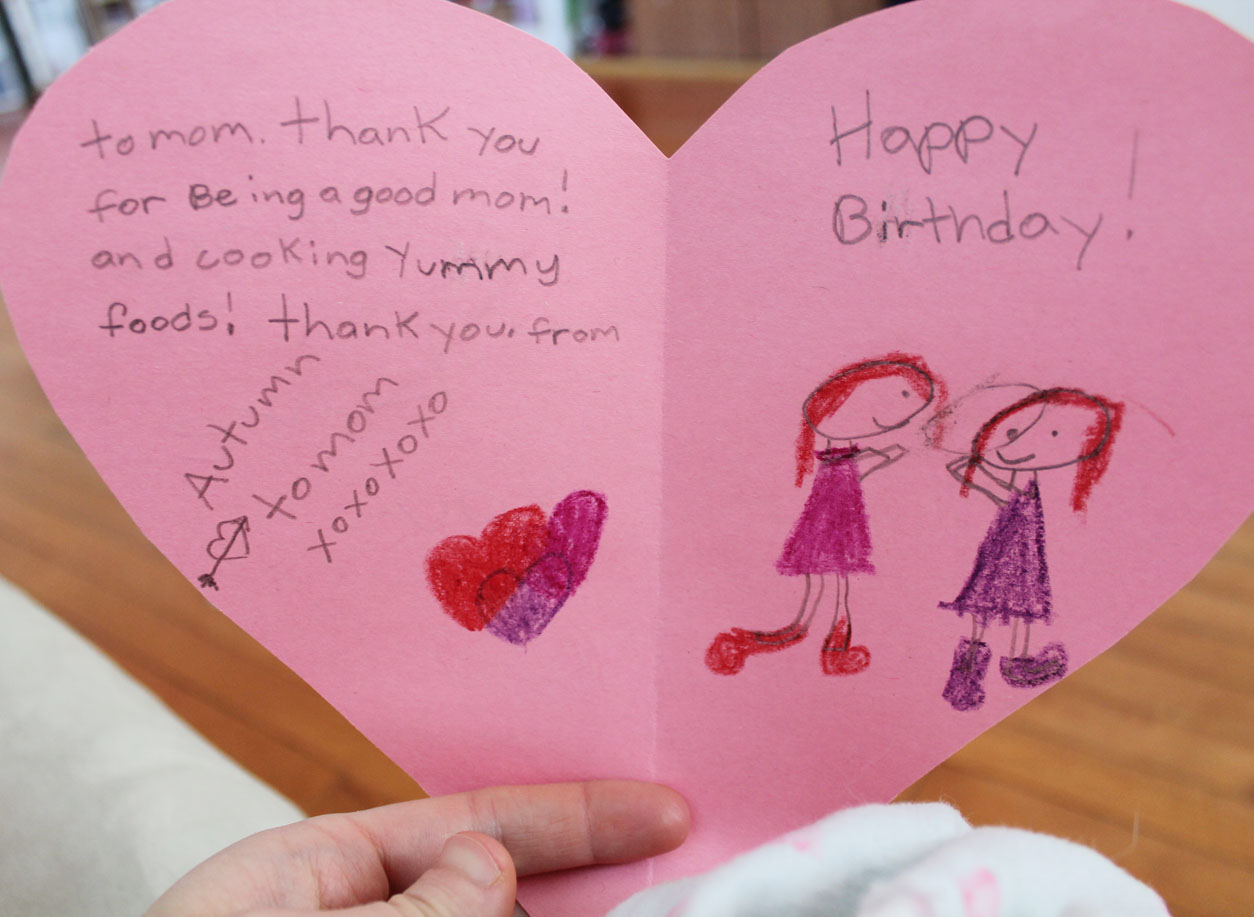 to mom. thank you
for Being a good mom!
and cooking Yummy
foods! thank you. from
Autumn
to mom
xoxoxoxo
Happy
Birthday!